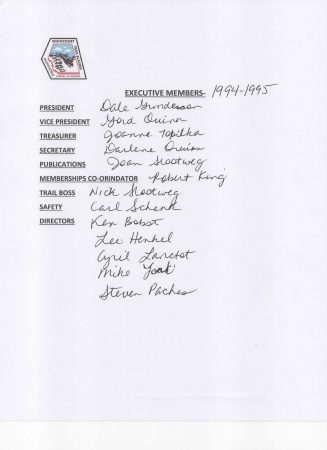 WHITECOURT
EXECUTIVE MEMBERS- 1994-1995
PRESIDENT Dale Gunderson
VICE PRESIDENT Gord Quinn
TREASURER Joanne Topilka
SECRETARY Darlene Quinn
PUBLICATIONS Joan Slootweg
MEMBERSHIPS CO-ORINDATOR Robert King
TRAIL BOSS Nick Slootweg
SAFETY Carl Schenk
DIRECTORS Ken Bobst
Lee Henkel
Cyril Lanctot
Mike York
Steven Paches